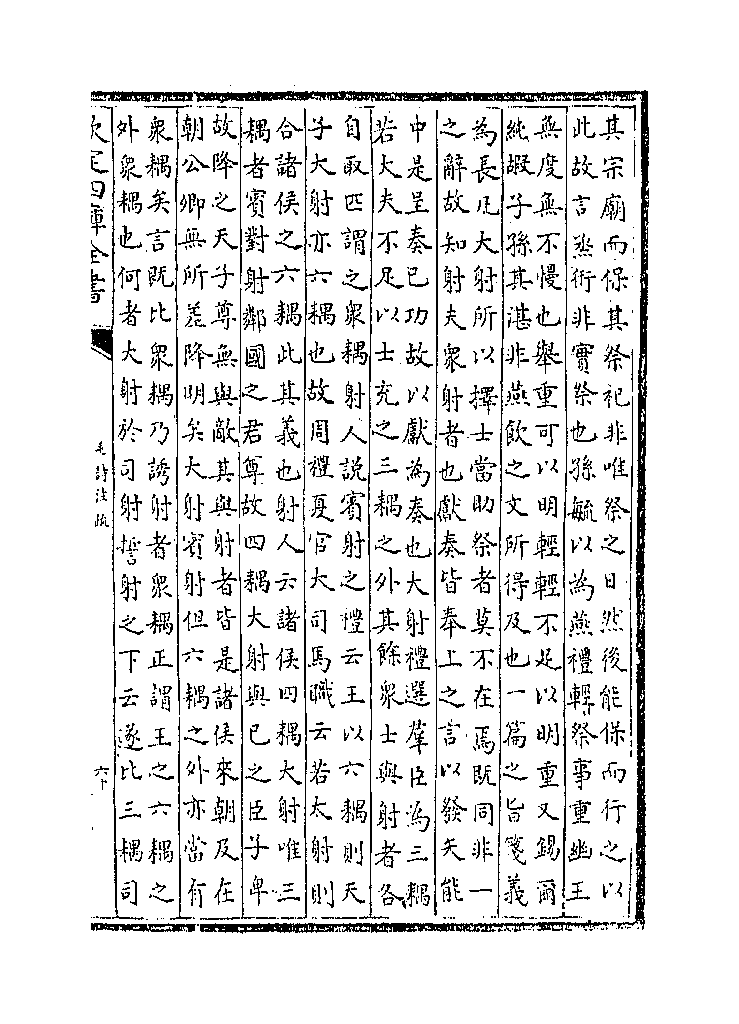 其宗廟而保其祭祀非唯祭之日然後能保而行之以
此故言烝衎非實祭也孫毓以為燕禮輕祭事重幽王
無度無不慢也舉重可以明輕輕不足以明重又錫爾
純嘏子孫其湛非燕飲之文所得及也一篇之旨箋義
為長凡大射所以擇士當助祭者莫不在焉既同非一
之辭故知射夫衆射者也獻奏皆奉上之言以發矢能
中是呈奏已功故以獻為奏也大射禮選羣臣為三耦
若大夫不足以士充之三耦之外其餘衆士與射者各
自取匹謂之衆耦射人說賓射之禮云王以六耦則天
子大射亦六耦也故周禮夏官大司馬職云若大射則
合諸侯之六耦此其義也射人云諸侯四耦大射唯三
耦者賓對射鄰國之君尊故四耦大射與已之臣子卑
故降之天子尊無與敵其與射者皆是諸侯來朝及在
朝公卿無所差降明矣大射賓射但六耦之外亦當有
衆耦矣言既比衆耦乃誘射者衆耦正謂王之六耦之
外衆耦也何者大射於司射誓射之下云遂比三耦司
欽定四庫全書
毛詩注疏
六十